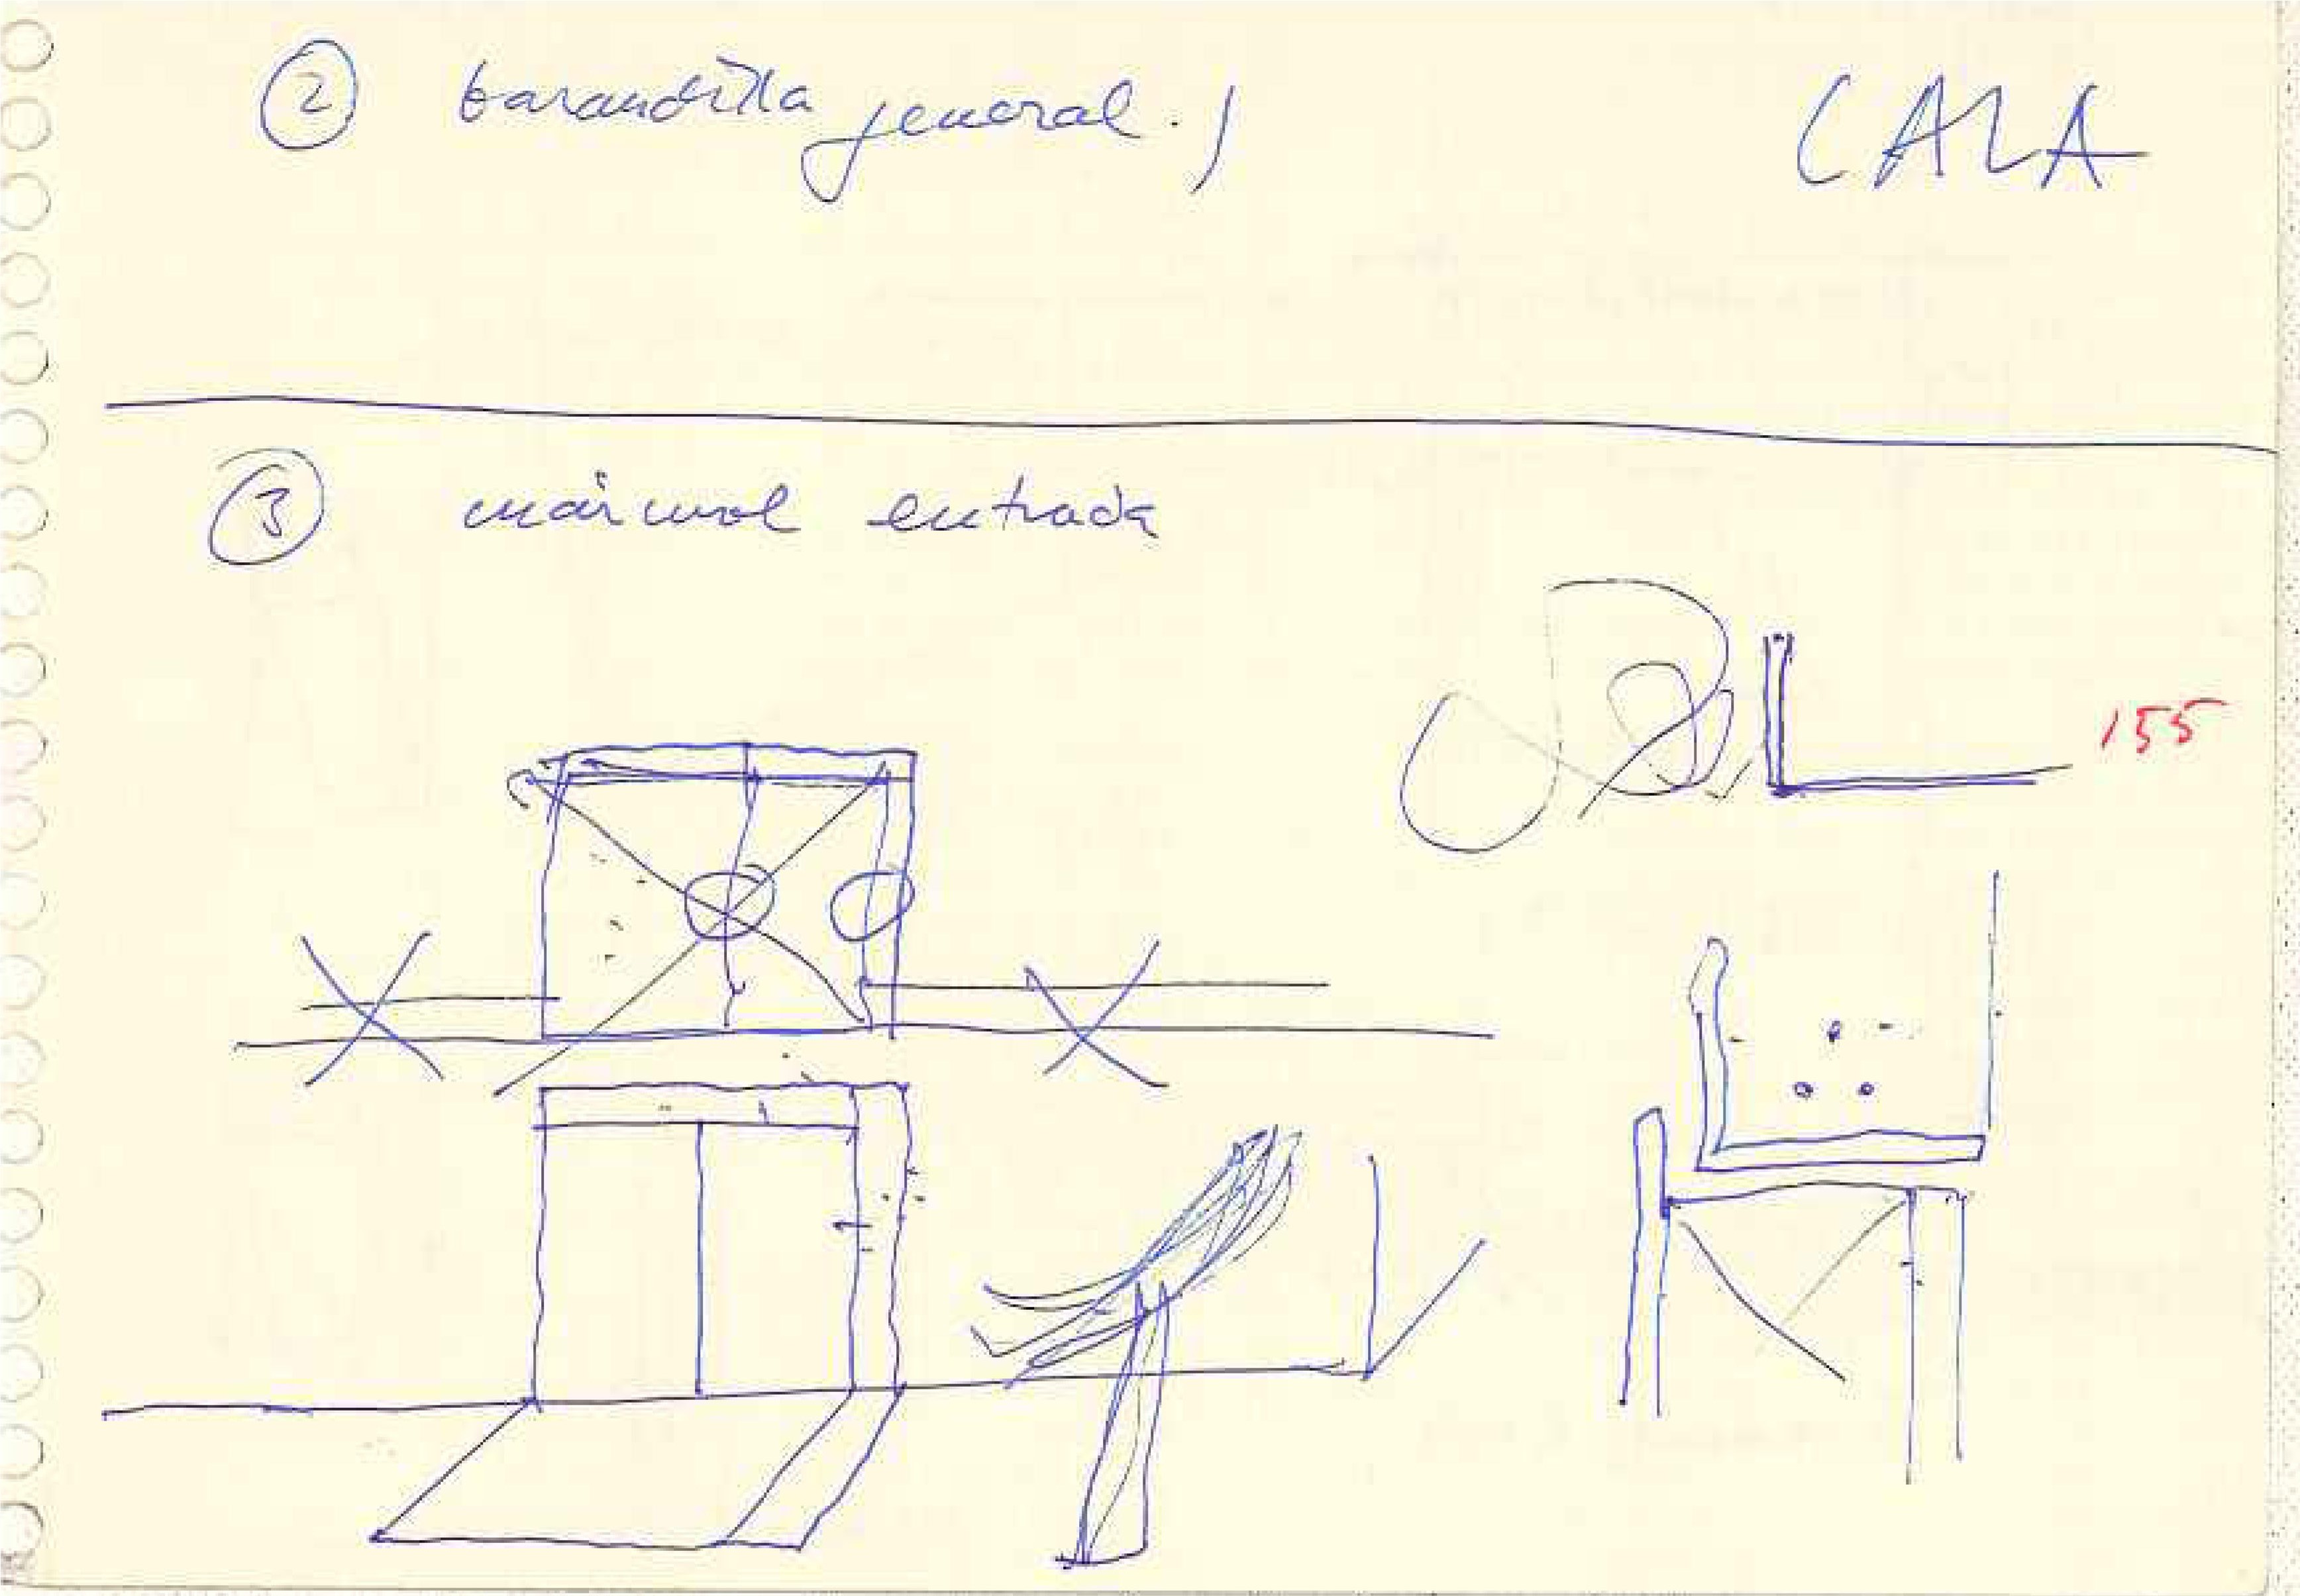 ② barandilla general.)
CALA
③ mármol entrada
155